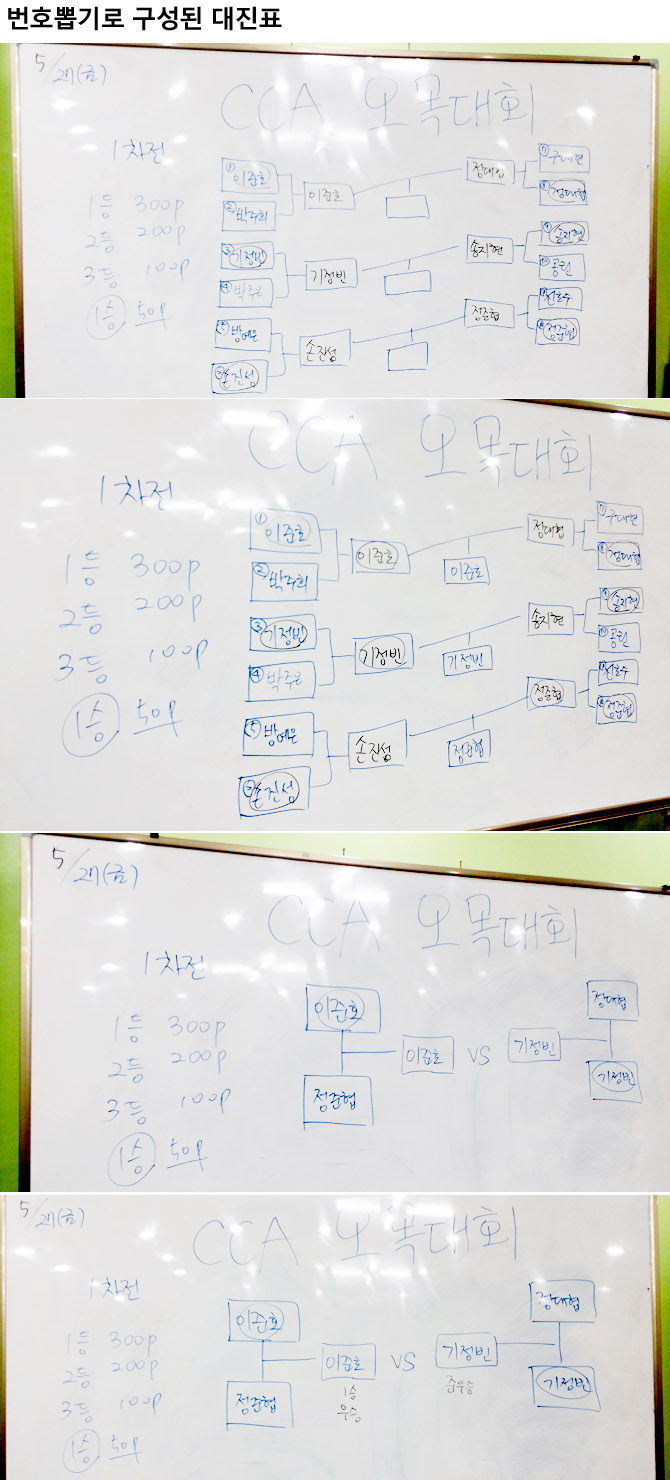 번호뽑기로 구성된 대진표
5/27(금)
CCA 오목대회
1차전
1등 300p
2등 200p
3등 100p
1승 50p
① 이준호
② 박주희
이준호
③ 기정빈
④ 박주은
기정빈
⑤ 방예은
⑥ 손진성
손진성
정대협
구대현
정대협
송지현
송지현
공린
정준협
정준협
CCA 오목대회
1차전
1등 300p
2등 200p
3등 100p
1승 50p
① 이준호
② 박주희
이준호
③ 기정빈
④ 박주은
기정빈
⑤ 방예은
⑥ 손진성
손진성
이준호
기정빈
정준협
정대협
구대현
정대협
송지현
송지현
공린
정준협
정준협
5/27(금)
CCA 오목대회
1차전
1등 300p
2등 200p
3등 100p
1승 50p
이준호
정준협
이준호 VS 기정빈
정대협
기정빈
5/27(금)
CCA 오목대회
1차전
1등 300p
2등 200p
3등 100p
1승 50p
이준호
정준협
이준호 VS 기정빈
1승
우승
준우승
정대협
기정빈